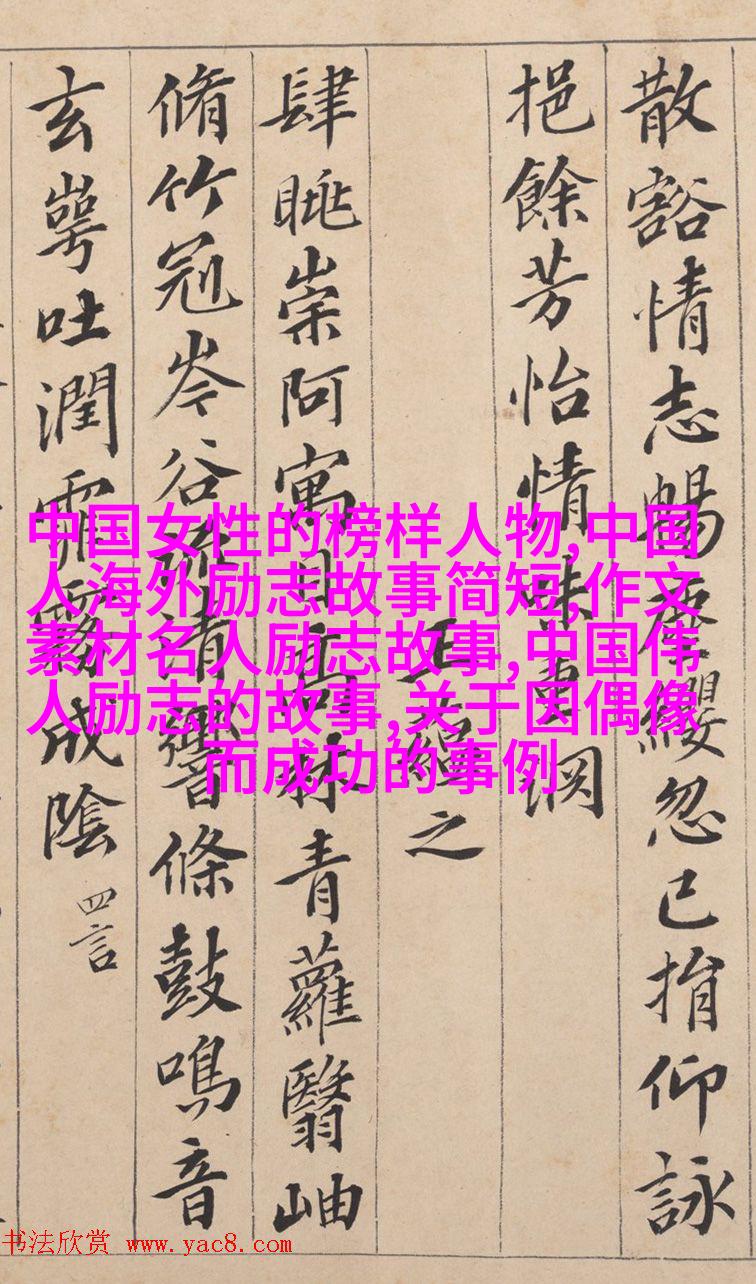 散豁情志暢塵纓忽已捐仰詠
挹餘芳怡情味重淵
王蘊之
肆眺崇阿寓目高林青蘿翳岫
脩竹冠岑谷流清響條鼓鳴音
玄崿吐潤霏霧成陰
四言
中国女性的榜样人物,中国
人海外励志故事简短,作文
素材名人励志故事,中国伟
人励志的故事,关于因偶像
而成功的事例
书法欣赏 www.yac8.com